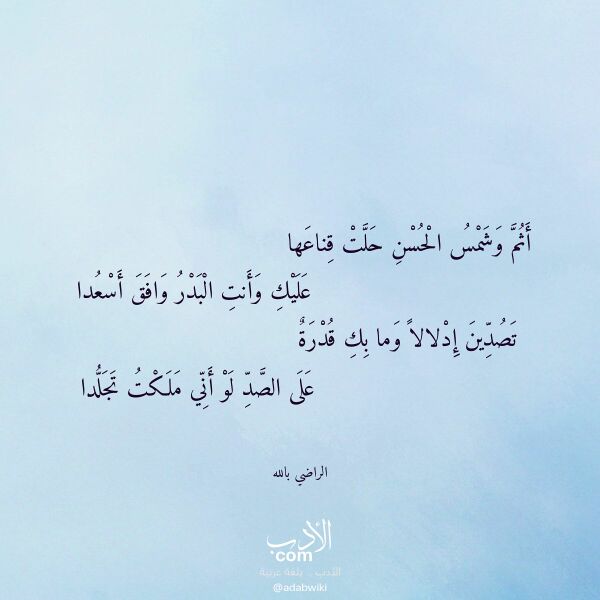 أَثُمَّ وَشَمْسُ الْحُسْنِ حَلَّتْ قِناعَها
عَلَيْكِ وَأَنتِ الْبَدْرُ وَافَقَ أَسْعُدا
تَصُدِّينَ إِدْلالاً وَما بِكِ قُدْرَةٌ
عَلَى الصَّدِّ لَوْ أَنِّي مَلَكْتُ تَجَلُّدا
الراضي بالله
الأدب
com
الأدب .. بلغة عربية
@adabwiki